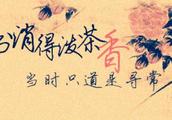 书消得泼茶香
当时只道是寻常